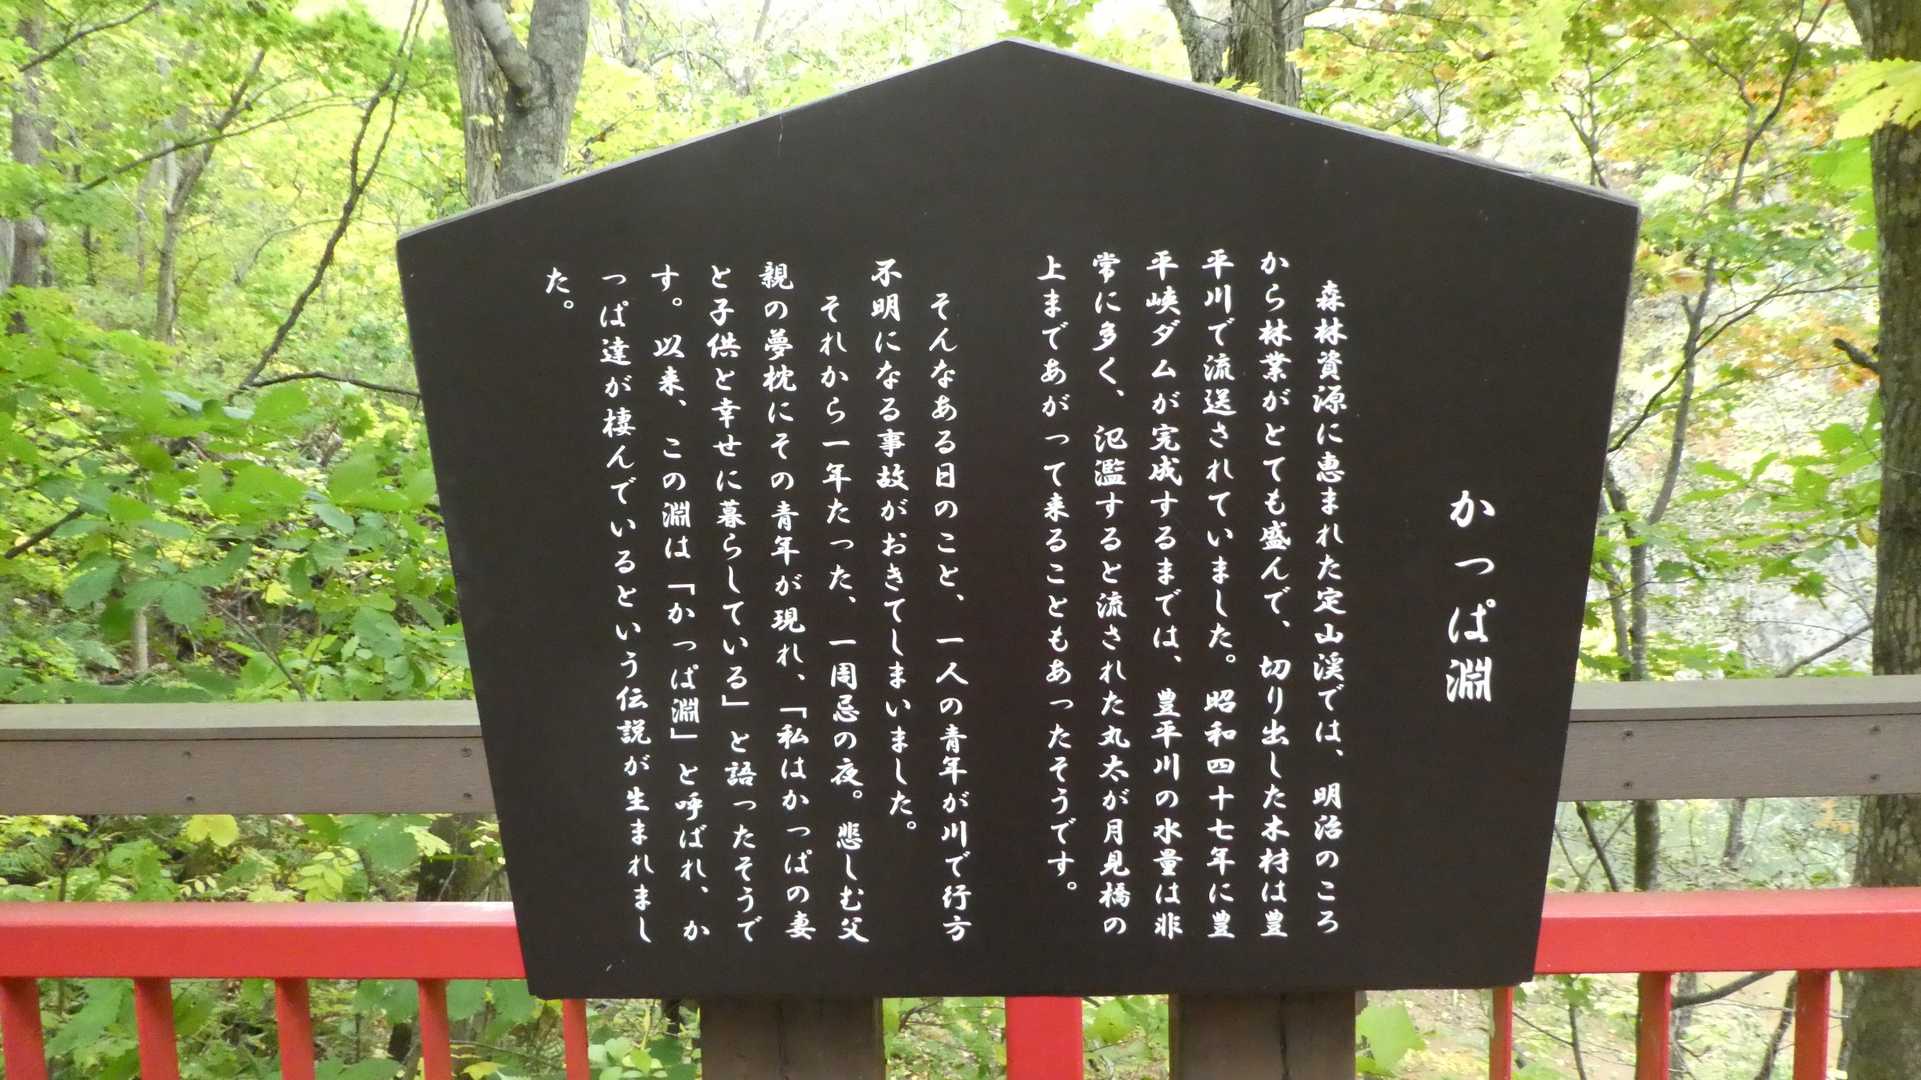 かっぱ淵
森林資源に恵まれた定山渓では、明治のころ
から林業がとても盛んで、切り出した木材は豊
平川で流送されていました。昭和四十七年に豊
平峡ダムが完成するまでは、豊平川の水量は非
常に多く、氾濫すると流された丸太が月見橋の
上まであがって来ることもあったそうです。
そんなある日のこと、一人の青年が川で行方
不明になる事故がおきてしまいました。
それから一年たった、一周忌の夜。悲しむ父
親の夢枕にその青年が現れ、「私はかっぱの妻
と子供と幸せに暮らしている」と語ったそうで
す。以来、この淵は「かっぱ淵」と呼ばれ、か
っぱ達が棲んでいるという伝説が生まれまし
た。